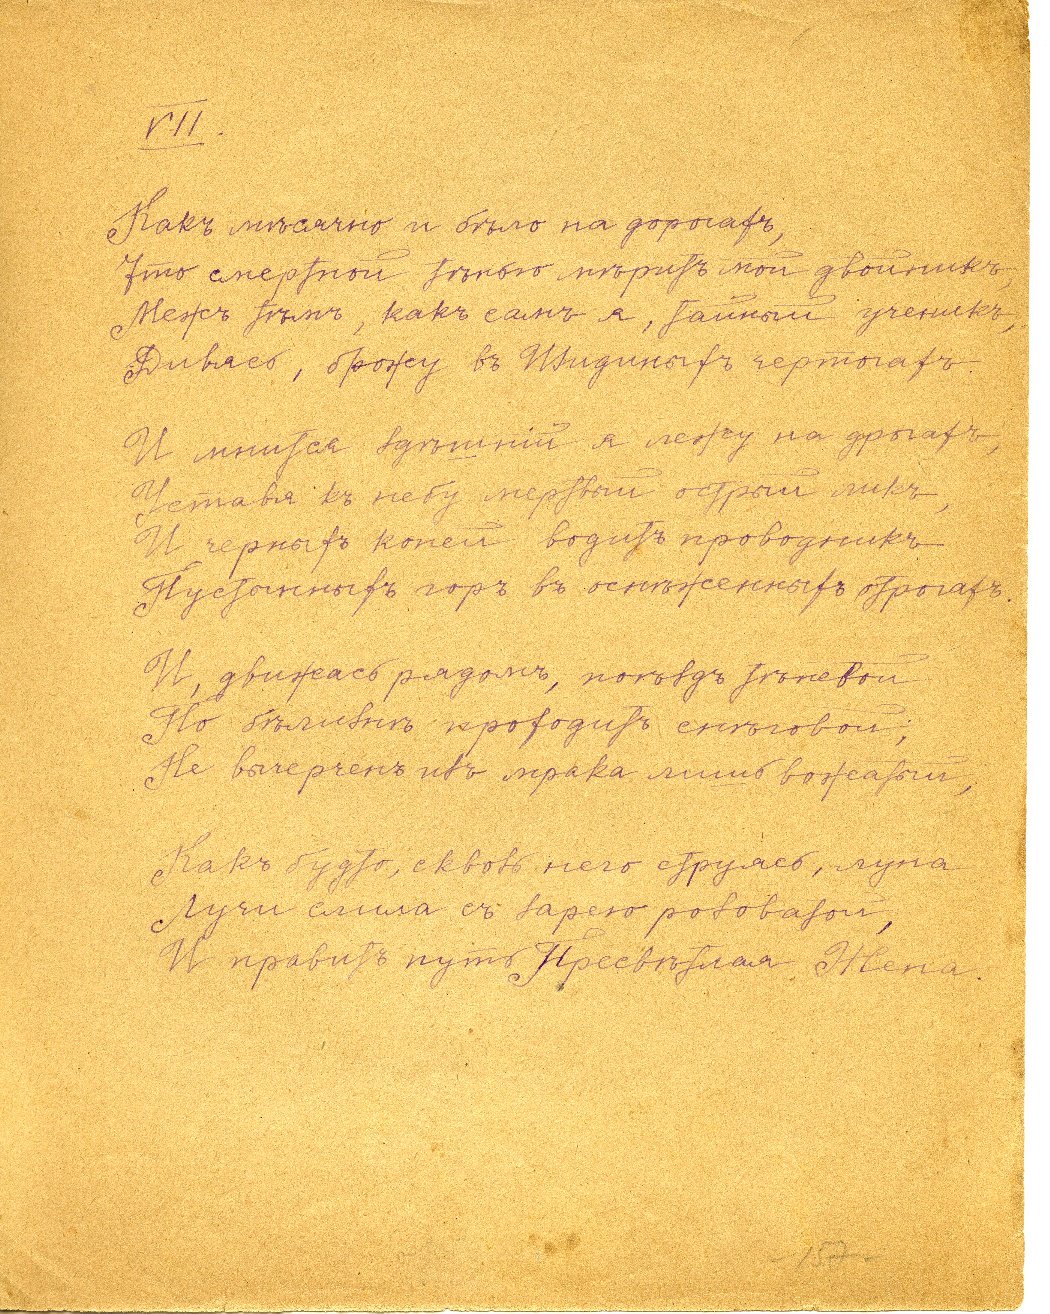 VII.
Какъ мѣсячно и бѣло на дорогахъ,
Что смертной тѣнью мѣритъ мой двойникъ,
Межъ тѣмъ, какъ самъ я, тайный ученикъ,
Дивясь, брожу въ Изидиныхъ чертогахъ.
И мнится здѣшній я лежу на дрогахъ,
Уставя къ небу мертвый острый ликъ,
И черныхъ коней водитъ проводникъ
Пустынныхъ горъ въ оснѣженныхъ отрогахъ.
И, движась рядомъ, поѣздъ тѣневой
По бѣлизнѣ проходитъ снѣговой;
Не вычерченъ изъ мрака лишь вожатый,
Какъ будто, сквозь него струясь, луна
Лучи слила съ зарею розоватой,
И правитъ путь Пресвѣтлая Жена.
-157-